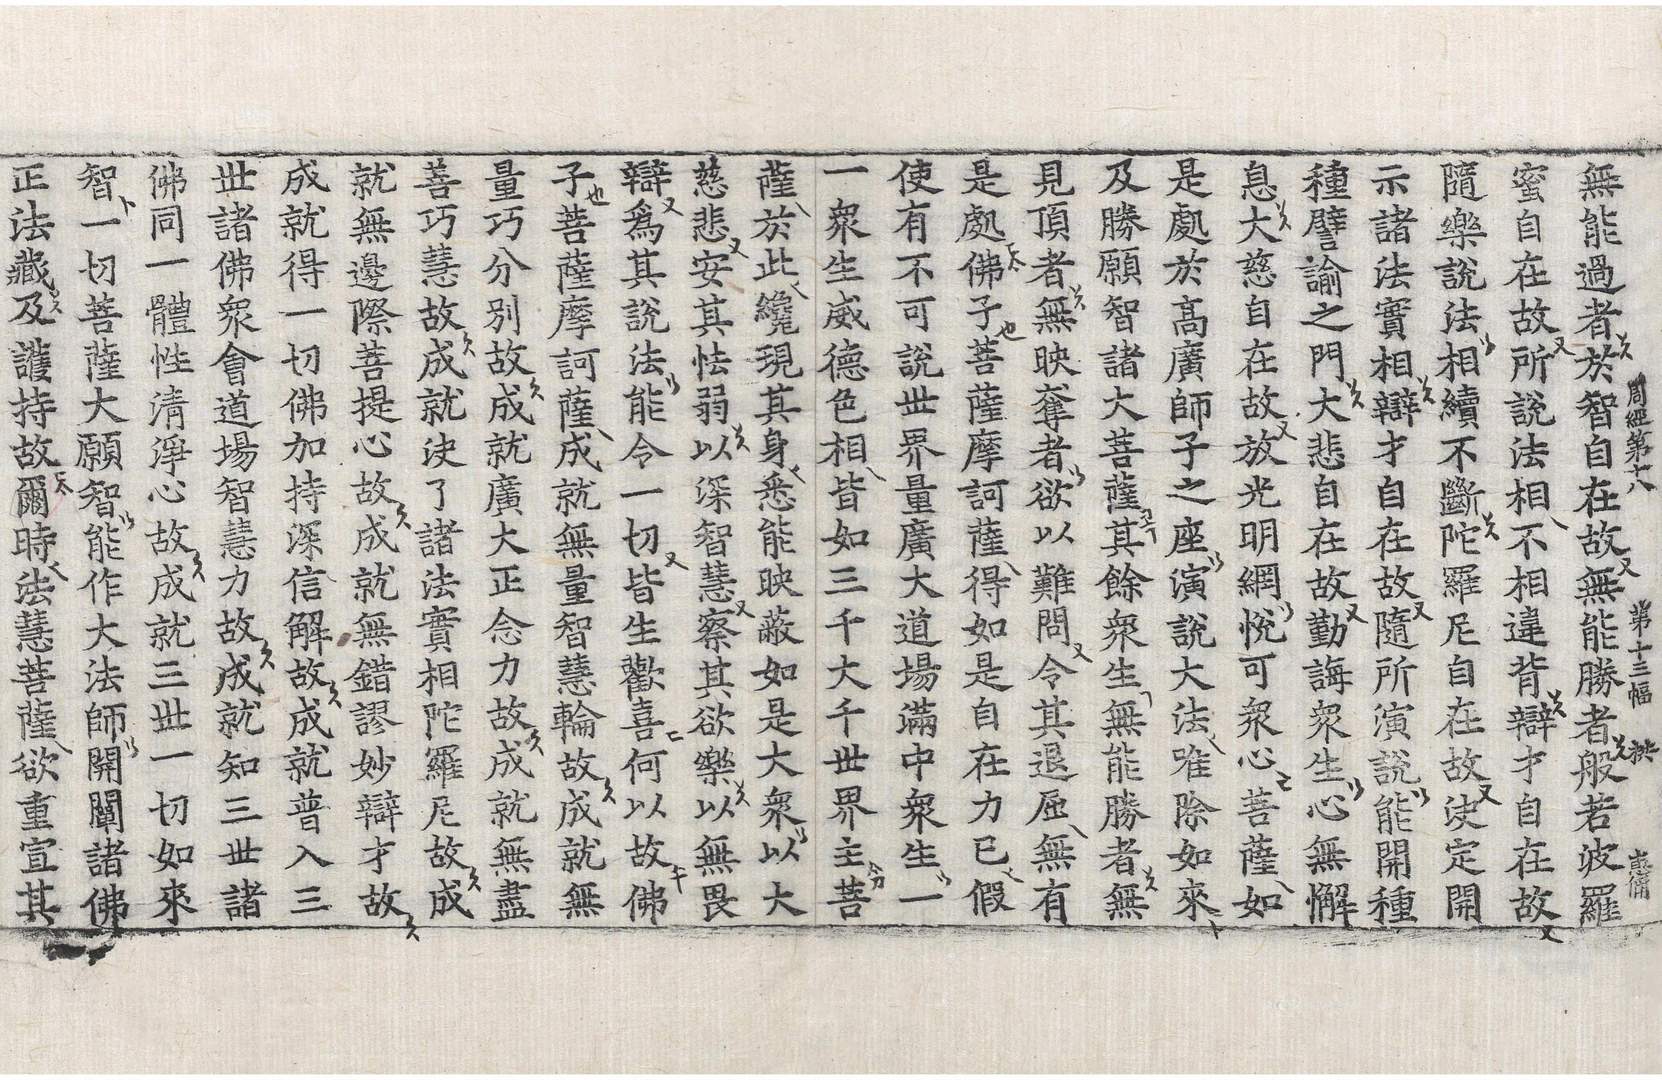 無能過者於智自在故無能勝者般若波羅
周經第十八　第十三幅　秧
蜜自在故所說法相不相違背辯才自在故
隨樂說法相續不斷陀羅尼自在故決定開
示諸法實相辯才自在故隨所演說能開種
種譬諭之門大悲自在故勤誨衆生心無懈
息大慈自在故放光明網悅可衆心菩薩如
是處於高廣師子之座演說大法唯除如來
及勝願智諸大菩薩其餘衆生無能勝者無
見頂者無映奪者欲以難問令其退屈無有
是處佛子菩薩摩訶薩得如是自在力已假
使有不可說世界量廣大道場滿中衆生一
一衆生威德色相皆如三千大千世界主菩
薩於此纔現其身悉能映蔽如是大衆以大
慈悲安其怯弱以深智慧察其欲樂以無畏
辯爲其說法能令一切皆生歡喜何以故佛
子菩薩摩訶薩成就無量智慧輪故成就無
量巧分別故成就廣大正念力故成就無盡
善巧慧故成就決了諸法實相陀羅尼故成
就無邊際菩提心故成就無錯謬妙辯才故
成就得一切佛加持深信解故成就普入三
世諸佛衆會道場智慧力故成就知三世諸
佛同一體性清淨心故成就三世一切如來
智一切菩薩大願智能作大法師開闡諸佛
正法藏及護持故爾時法慧菩薩欲重宣其